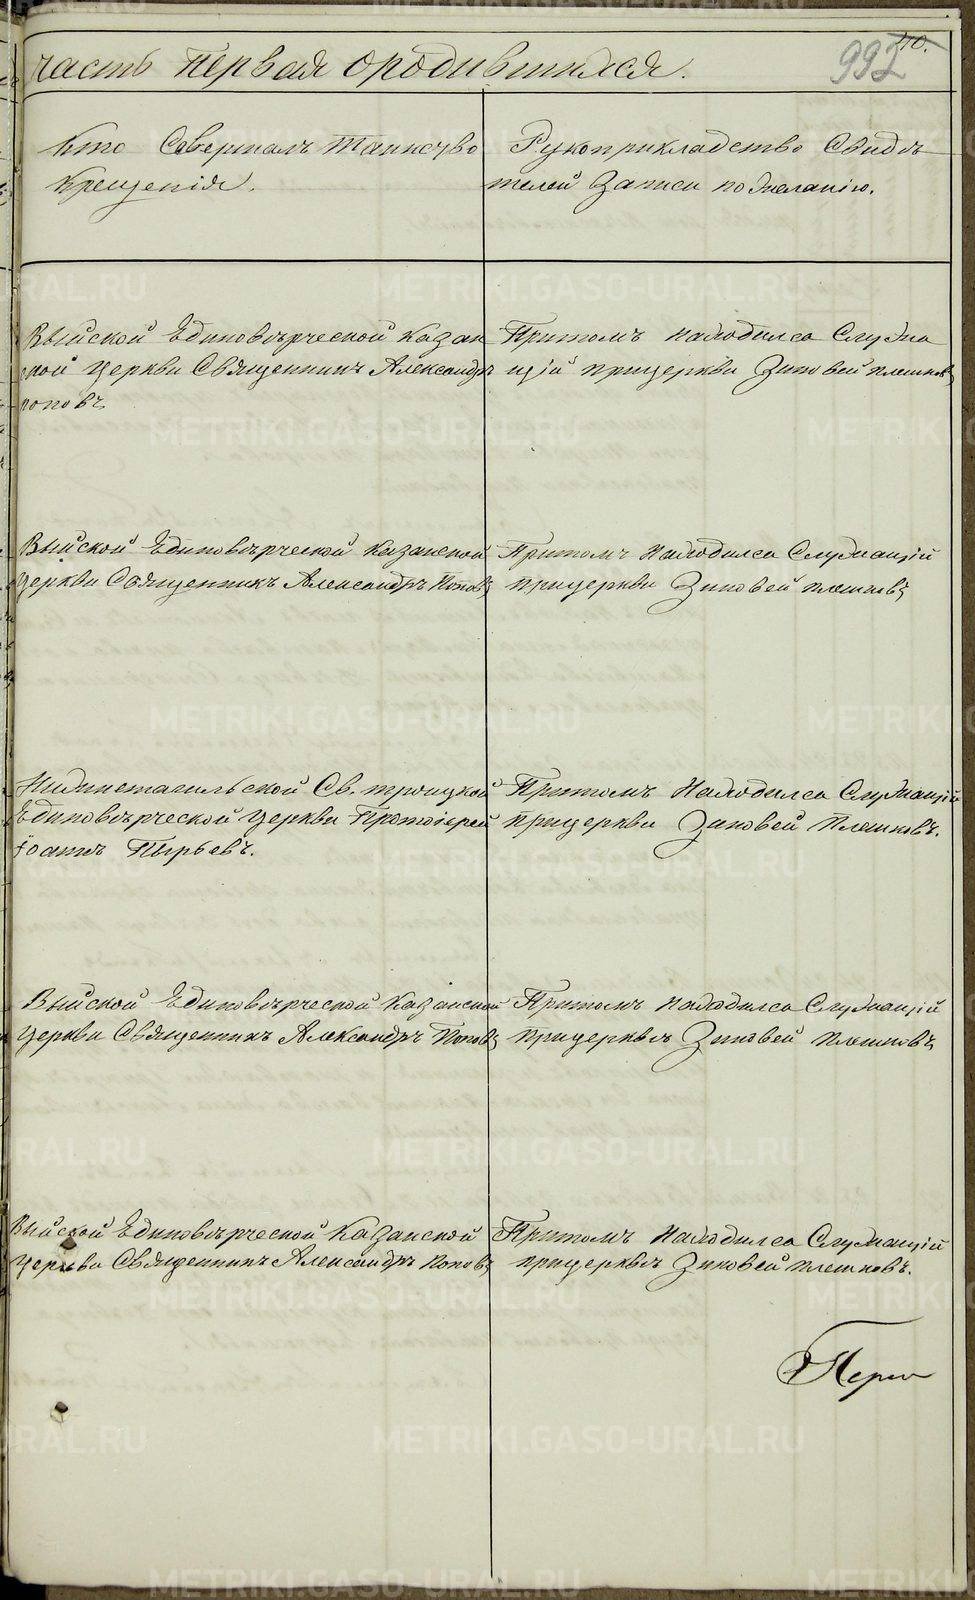 часть первая ородившихся.
992
10.
Кто Совершалъ Таинство
Крещенія.
Рукоприкладство Свидѣ
телей Записи по Желанію.
Выйской Единовѣрческой Казан
ской Церкви Священникъ Александръ
поповъ
Притомъ находился Служа
щій прицеркви Зиновей плешковъ
Выйской Единовѣрческой Казанской
Церкви Священникъ Александръ Поповъ
Притомъ Находился Служащій
прицеркви Зиновей плешковъ
Нижнетагильской Св. троицкой
Единовѣрческой Церкви Протоіерей
Іоаннъ Пырьевъ.
Притомъ Находился Служащій
прицеркви Зиновей Плешковъ.
Выйской Единовѣрческой Казанской
Церкви Священникъ Александръ Поповъ
Притомъ находился Служащій
прицерквѣ Зиновей плешковъ
Выйской Единовѣрческой Казанской
Церкви Священникъ Александръ Поповъ
Притомъ Находился Служащій
прицерквѣ Зиновей плешковъ.
METRIKI.GASO-URAL.RU